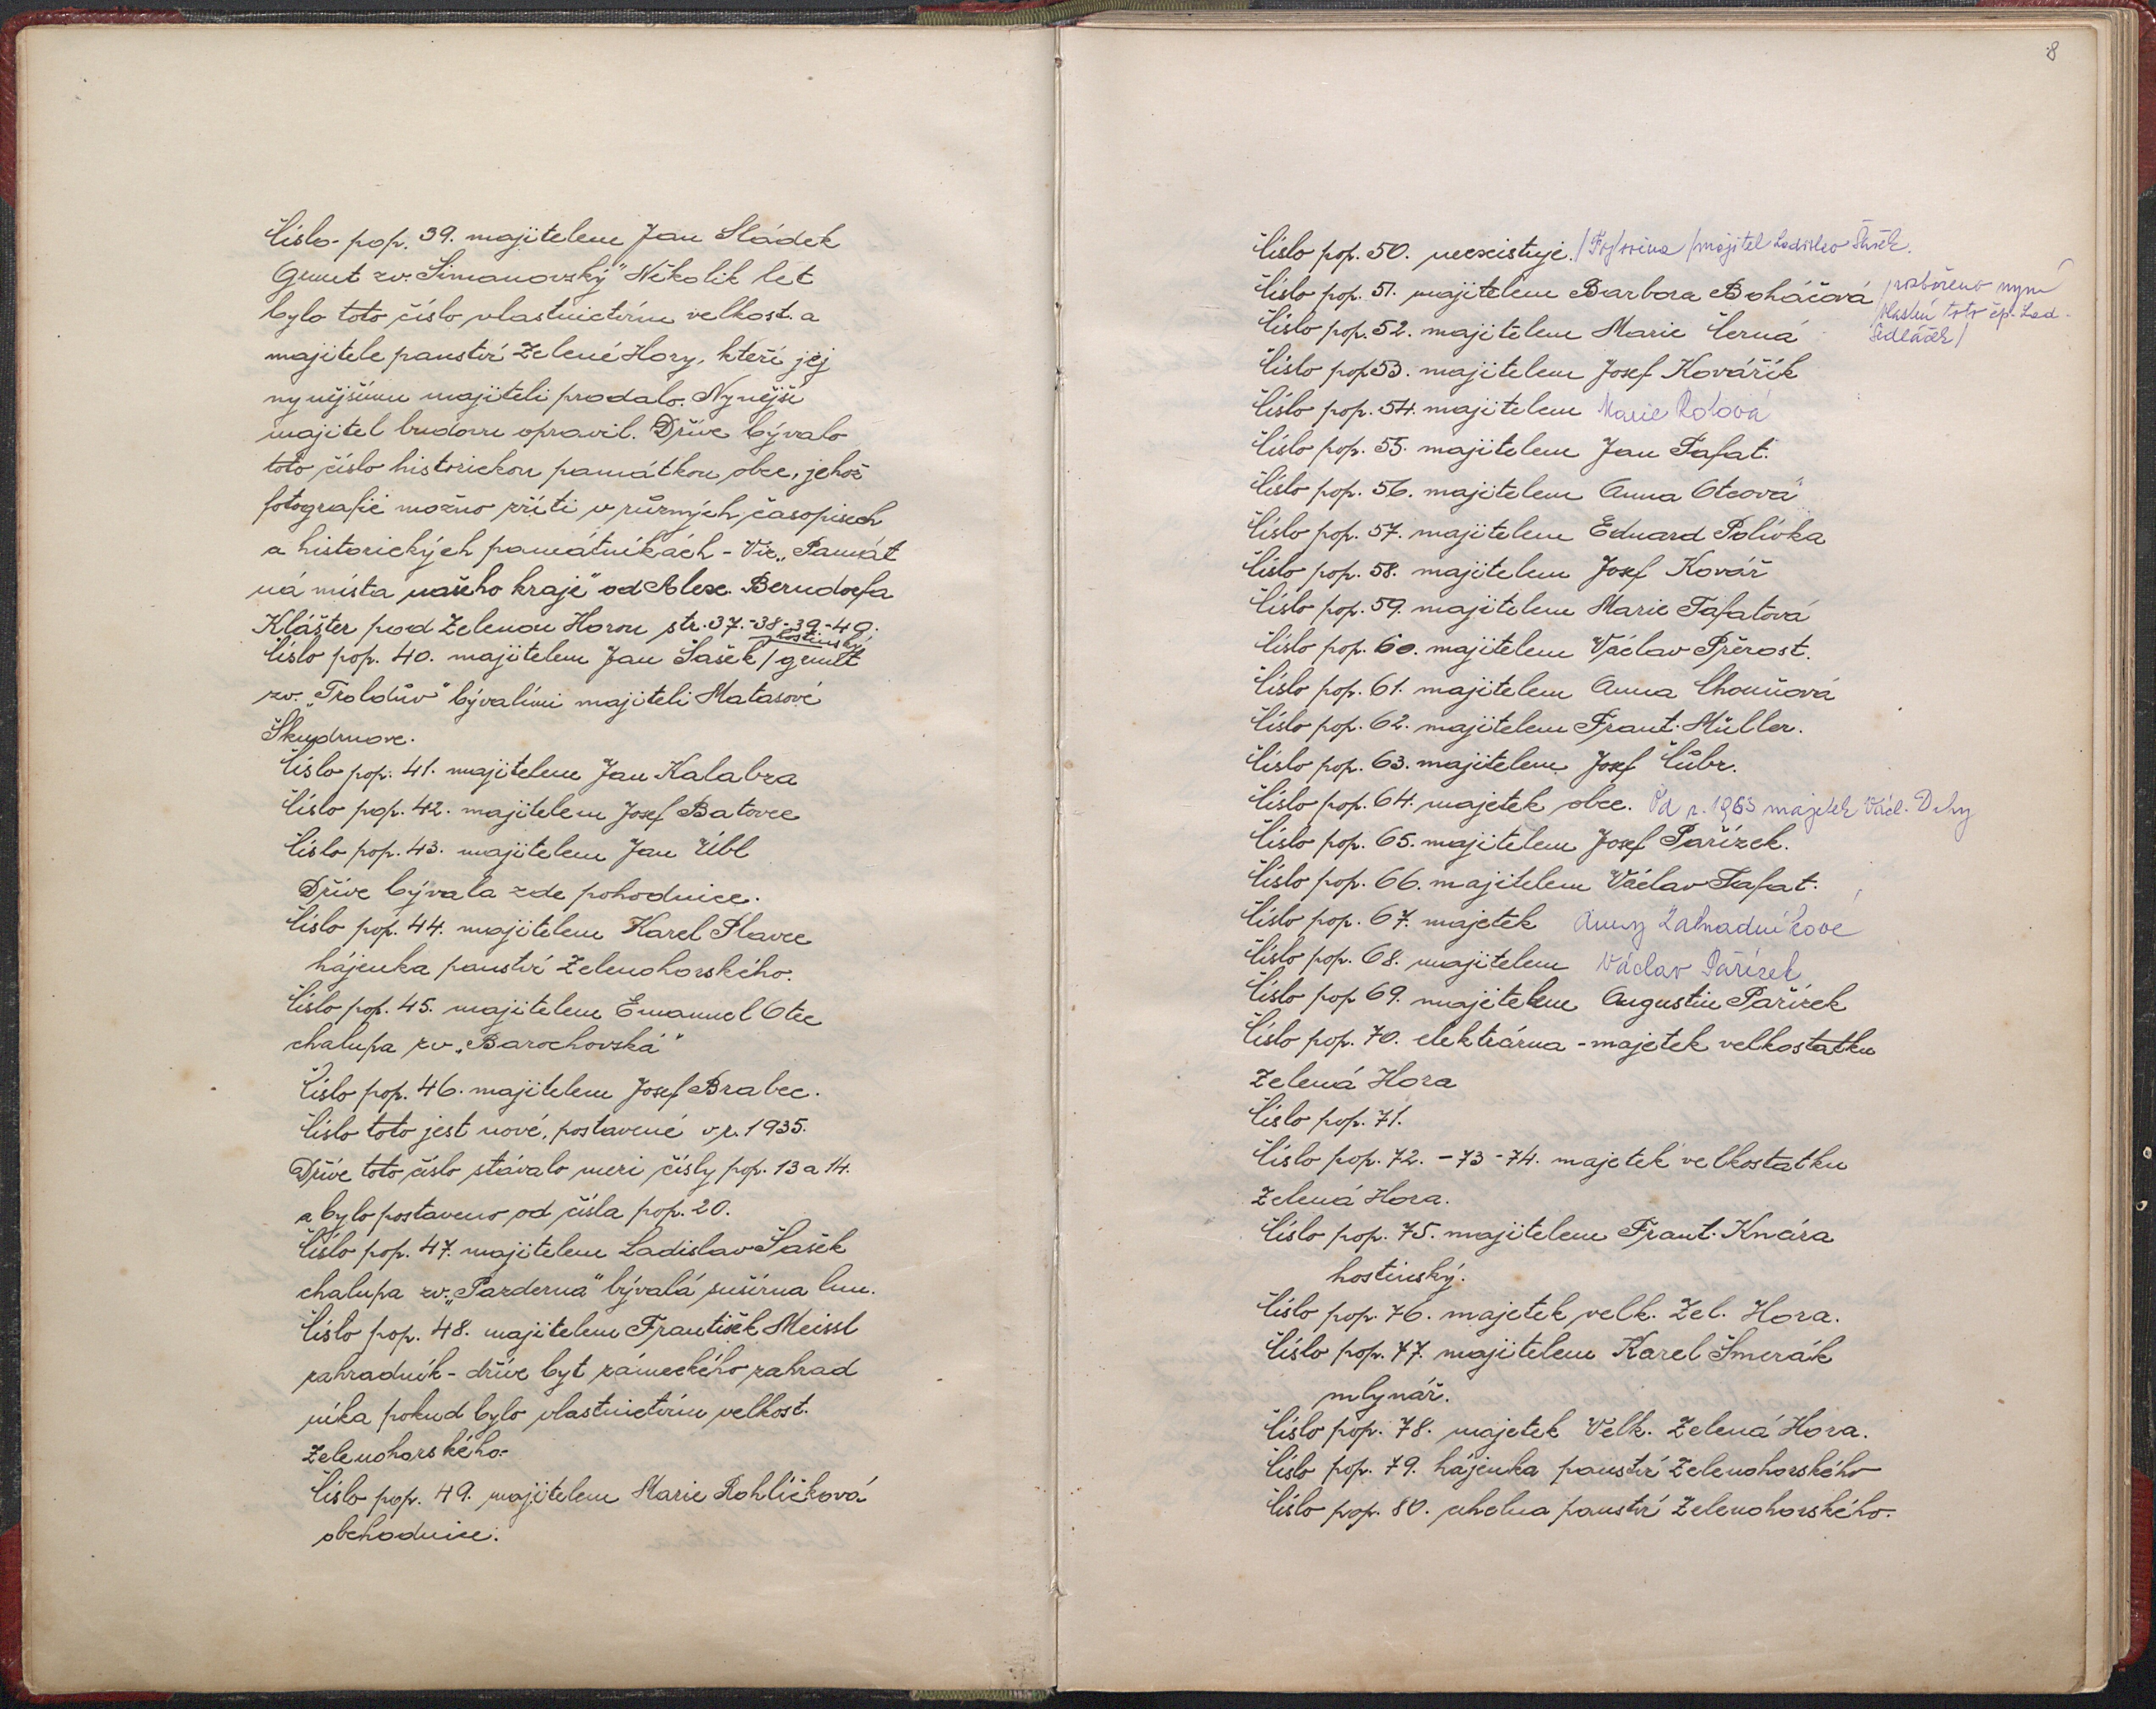 Číslo-pop. 39. majitelem Jan Sládek
Grunt zv. Šimanovský" Několik let
bylo toto číslo vlastnictvím velkost. a
majitele panství Zelené Hory, kteří jej
nynějšímu majiteli prodalo. Nynější
majitel budovu opravil. Dříve bývalo
toto číslo historickou památkou obce, jehož
fotografii možno zříti v různých časopisech
a historických památníkách - Viz „Památ
ná místa našeho kraje" od Alex. Berndorfa
Klášter pod Zelenou Horou str. 37.-38-39-49.
hostinský
Číslo pop. 40. majitelem Jan Šašek / grunt
zv. „Troldův" bývalími majiteli Matasové
Škudrnove.
Číslo pop. 41. majitelem Jan Kalabza
Číslo pop. 42. majitelem Josef Batovec
Číslo pop. 43. majitelem Jan Úbl
Dříve bývala zde pohodnice.
Číslo pop. 44. majitelem Karel Plavec
hájenka panství Zelenohorského.
Číslo pop. 45. majitelem Emanuel Otec
chalupa zv „Barochovská"
Číslo pop. 46. majitelem Josef Brabec.
Číslo toto jest nové, postavené v r. 1935.
Dříve toto číslo stávalo mezi čísly pop. 13 a 14.
a bylo postaveno od čísla pop. 20.
Číslo pop. 47. majitelem Ladislav Šašek
chalupa zv. „Pazderna" bývalá sušírna lnu.
Číslo pop. 48. majitelem František Meissl
zahradník - dříve byt zámeckého zahrad
níka pokud bylo vlastnictvím velkost.
Zelenohorského.
Číslo pop. 49. majitelem Marie Rohlíčková
obchodnice.
8
Číslo pop. 50. neexistuje. majitel Ladislav Šašek.
Číslo pop. 51. majitelem Barbora Boháčová /zbořeno nyní
vlastní toto čp. Lad.
Sedláček/
Číslo pop. 52. majitelem Marie Černá
Číslo pop 53. majitelem Josef Kovářík
Číslo pop. 54. majitelem Marie
Číslo pop. 55. majitelem Jan Tafat.
Číslo pop. 56. majitelem Anna Otcová
Číslo pop. 57. majitelem Eduard Polívka
Číslo pop. 58. majitelem Josef Kovář
Číslo pop. 59. majitelem Marie Tafatová
Číslo pop. 60. majitelem Václav Přerost.
Číslo pop. 61. majitelem Anna Chouňová
Číslo pop. 62. majitelem Frant. Müller.
Číslo pop. 63. majitelem Josef Čůbr.
Číslo pop. 64. majetek obce. Od r. 1963 majetek Václ. Duhy
Číslo pop. 65. majitelem Josef Pařízek.
Číslo pop. 66. majitelem Václav Tafat.
Číslo pop. 67. majetek Anny Zahradníkové
Číslo pop. 68. majitelem Václav Pařízek
Číslo pop 69. majitelem Augustin Pařízek
Číslo pop. 70. elektrárna - majetek velkostatku
Zelená Hora
Číslo pop. 71.
Číslo pop. 72. - 73 - 74. majetek velkostatku
Zelená Hora.
Číslo pop. 75. majitelem Frant. Knára
hostinský.
Číslo pop. 76. majetek velk. Zel. Hora.
Číslo pop. 77. majitelem Karel Šmerák
mlynář.
Číslo pop. 78. majetek Velk. Zelená Hora.
Číslo pop. 79. hájenka panství Zelenohorského
Číslo pop. 80. uhelna panství Zelenohorského.